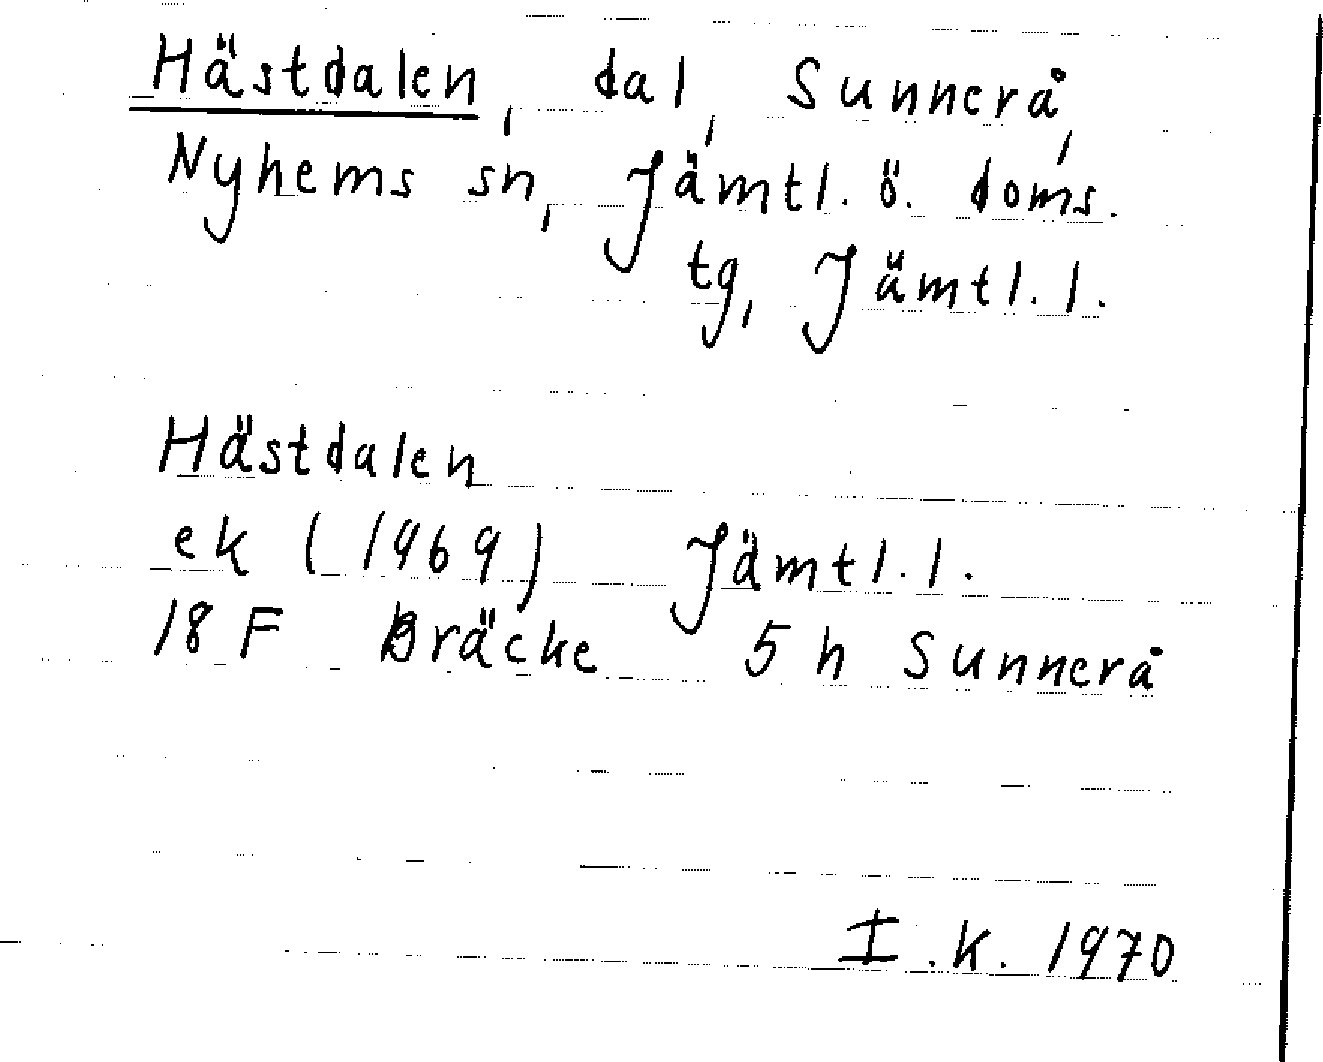 Hästdalen, dal, Sunnerå,
Nyhems sn, Jämtl. ö. doms.
tg, Jämtl. l.
Hästdalen
ek (1969) Jämtl. l.
18 F Bräcke 5 h Sunnerå
I.K. 1970